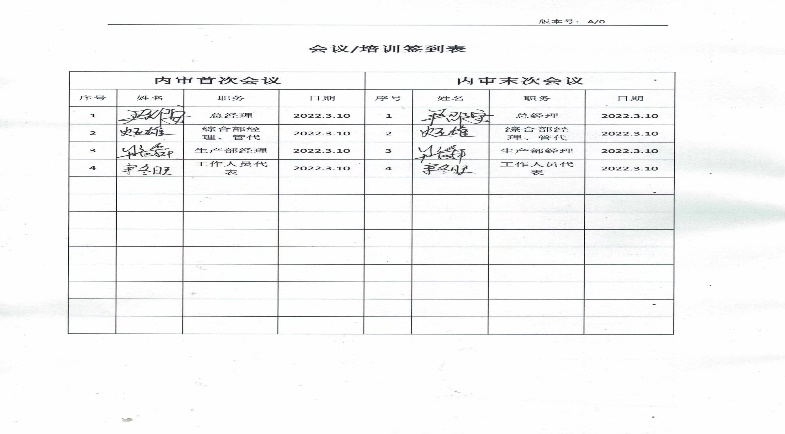 版本号：A/0
会议/培训签到表
内审首次会议 内审末次会议
序号 姓名 职务 日期 序号 姓名 职务 日期
1 总经理 2022.3.10 1 总经理 2022.3.10
2 综合部经理、管代 2022.3.10 2 综合部经理、管代 2022.3.10
3 生产部经理 2022.3.10 3 生产部经理 2022.3.10
4 工作人员代表 2022.3.10 4 工作人员代表 2022.3.10